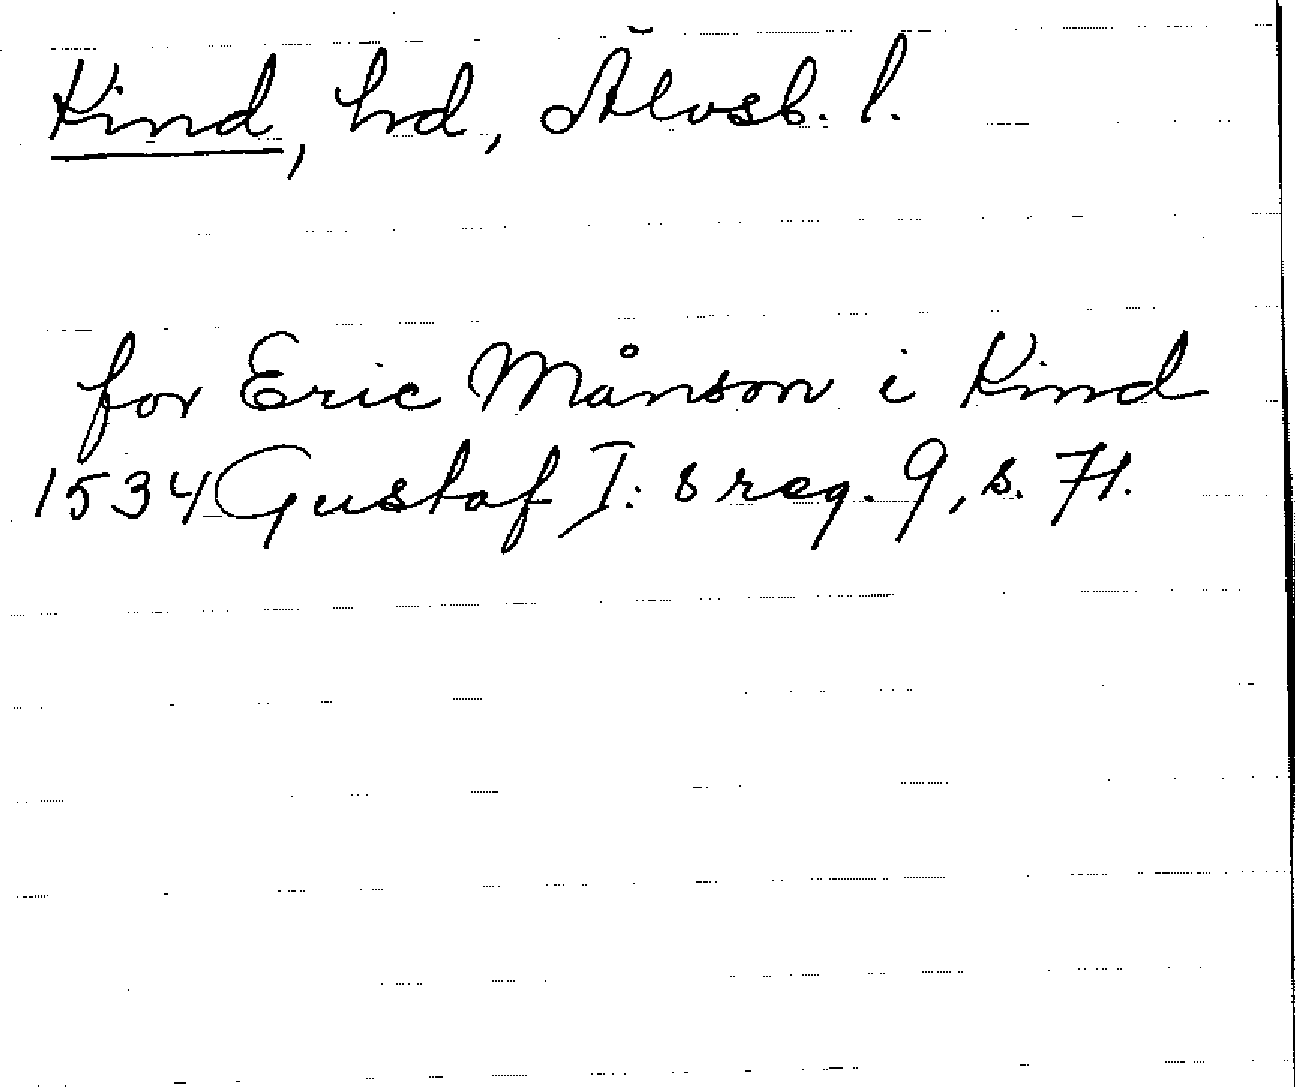 Kind, hd, Älvsb. l.
for Eric Månson i Kind
1534 Gustaf I: s reg. 9, s. 71.